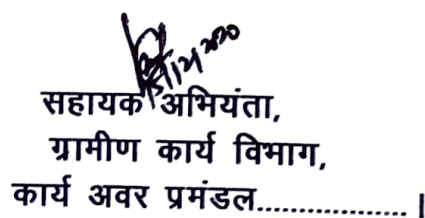 सहायक अभियंता,
ग्रामीण कार्य विभाग,
कार्य अवर प्रमंडल.................।